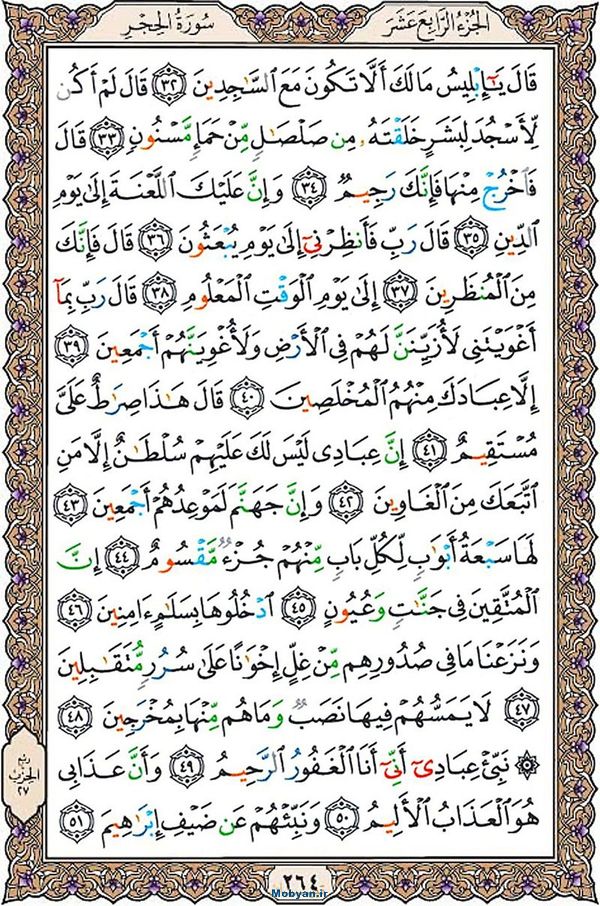 الجُزْءُ الرَّابِعَ عَشَرَ
سُورَةُ الحِجْرِ
قَالَ يَـٰٓإِبْلِيسُ مَا لَكَ أَلَّا تَكُونَ مَعَ ٱلسَّـٰجِدِينَ ٣٢ قَالَ لَمْ أَكُن
لِّأَسْجُدَ لِبَشَرٍ خَلَقْتَهُۥ مِن صَلْصَـٰلٍ مِّنْ حَمَإٍ مَّسْنُونٍ ٣٣ قَالَ
فَٱخْرُجْ مِنْهَا فَإِنَّكَ رَجِيمٌ ٣٤ وَإِنَّ عَلَيْكَ ٱللَّعْنَةَ إِلَىٰ يَوْمِ
ٱلدِّينِ ٣٥ قَالَ رَبِّ فَأَنظِرْنِىٓ إِلَىٰ يَوْمِ يُبْعَثُونَ ٣٦ قَالَ فَإِنَّكَ
مِنَ ٱلْمُنظَرِينَ ٣٧ إِلَىٰ يَوْمِ ٱلْوَقْتِ ٱلْمَعْلُومِ ٣٨ قَالَ رَبِّ بِمَآ
أَغْوَيْتَنِى لَأُزَيِّنَنَّ لَهُمْ فِى ٱلْأَرْضِ وَلَأُغْوِيَنَّهُمْ أَجْمَعِينَ ٣٩
إِلَّا عِبَادَكَ مِنْهُمُ ٱلْمُخْلَصِينَ ٤٠ قَالَ هَـٰذَا صِرَٰطٌ عَلَىَّ
مُسْتَقِيمٌ ٤١ إِنَّ عِبَادِى لَيْسَ لَكَ عَلَيْهِمْ سُلْطَـٰنٌ إِلَّا مَنِ
ٱتَّبَعَكَ مِنَ ٱلْغَاوِينَ ٤٢ وَإِنَّ جَهَنَّمَ لَمَوْعِدُهُمْ أَجْمَعِينَ ٤٣
لَهَا سَبْعَةُ أَبْوَٰبٍ لِّكُلِّ بَابٍ مِّنْهُمْ جُزْءٌ مَّقْسُومٌ ٤٤ إِنَّ
ٱلْمُتَّقِينَ فِى جَنَّـٰتٍ وَعُيُونٍ ٤٥ ٱدْخُلُوهَا بِسَلَـٰمٍ ءَامِنِينَ ٤٦
وَنَزَعْنَا مَا فِى صُدُورِهِم مِّنْ غِلٍّ إِخْوَٰنًا عَلَىٰ سُرُرٍ مُّتَقَـٰبِلِينَ
٤٧ لَا يَمَسُّهُمْ فِيهَا نَصَبٌ وَمَا هُم مِّنْهَا بِمُخْرَجِينَ ٤٨
۞ نَبِّئْ عِبَادِىٓ أَنِّىٓ أَنَا ٱلْغَفُورُ ٱلرَّحِيمُ ٤٩ وَأَنَّ عَذَابِى
هُوَ ٱلْعَذَابُ ٱلْأَلِيمُ ٥٠ وَنَبِّئْهُمْ عَن ضَيْفِ إِبْرَٰهِيمَ ٥١
ربع
الحزب
٢٧
٢٦٤
Mobyan.ir